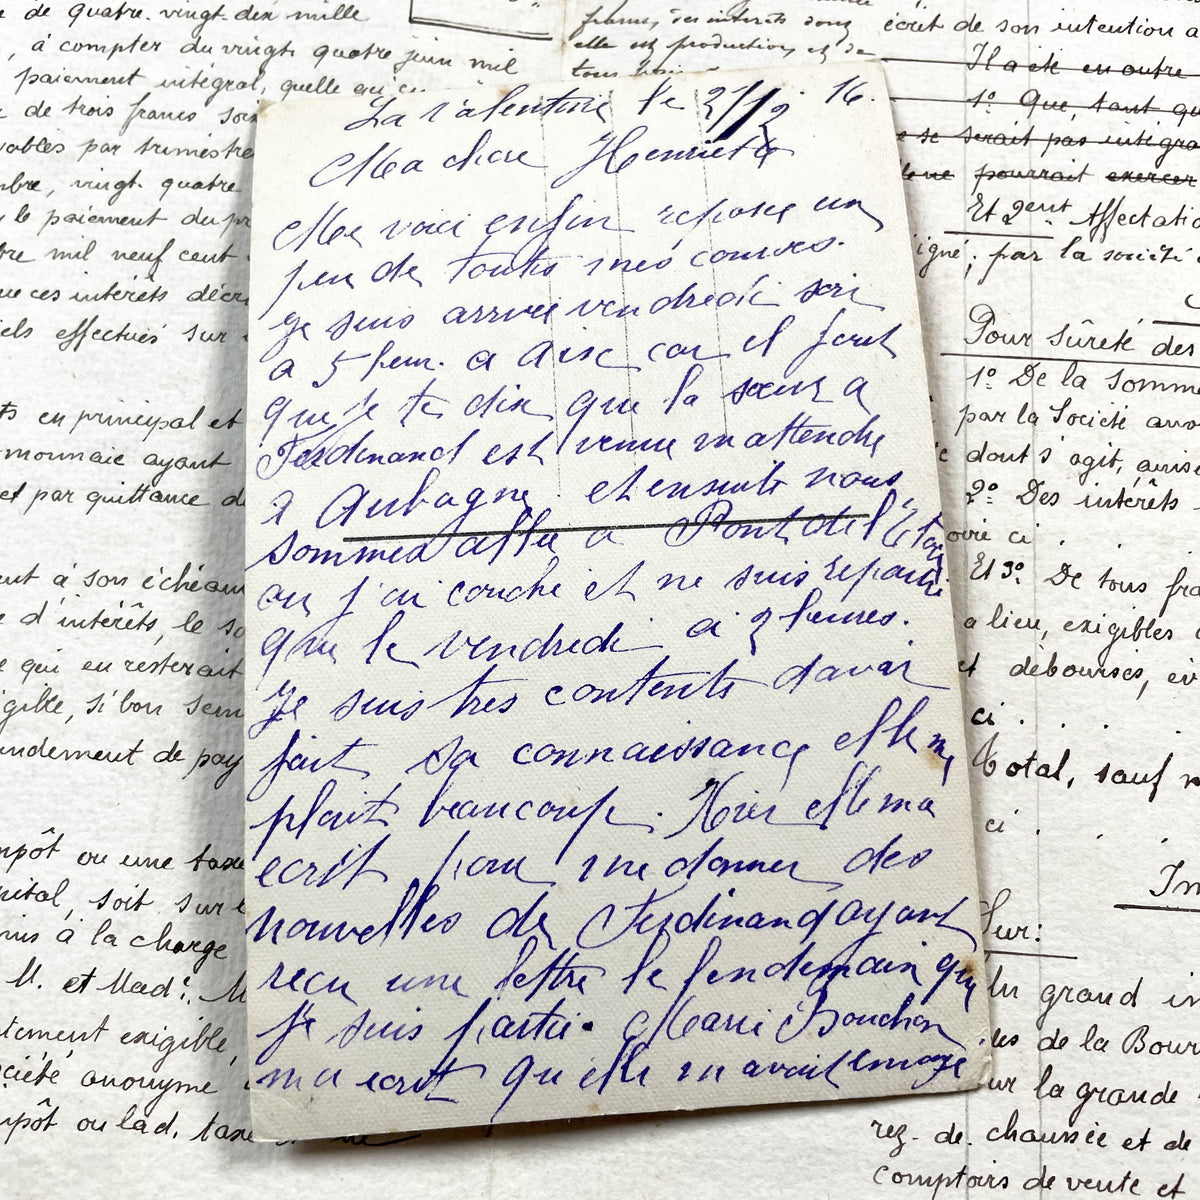 de quatre-vingt-dix mille
à compter du vingt quatre juin mil
paiement intégral, quelle
de trois francs
par trimestre
vingt-quatre
le paiement du
mil neuf cent
ces intérêts
effectués sur
en principal et
monnaie ayant
et par quittance
à son
d'intérêts, le
qui en resterait
si bon
de pay
ou une taxe
soit sur
à la charge
M. et Mad. M
exigible,
anonyme
ou lad. taxe
francs, ses intérêts
elle est production, et de
tous
écrit de son intention
Il a été en outre
1° Que, tant
se serait pas
pourrait exercer
Et 2ent Affectation
par la société
Pour sûreté des
1° De la somme
par la Société
dont s'agit,
2° Des intérêts
ci
Et 3° De tous
lieu, exigibles
et déboursés,
ci . . .
Total, sauf
ci . . .
In
Sur:
Un grand
de la Bour
sur la grande
rez-de-chaussée et de
comptoirs de vente et
La Valentine le 2/12 16.
Ma chere Henriette
Me voici enfin reposée un
peu de toutes mes courses.
Je suis arrivée vendredi soir
a 5 heur. a Aix car il faut
que je te dise que la sœur a
Ferdinand est venue mattendre
a Aubagne et ensuite nous
sommes allée a Pont de l'Etoile
ou j'ai couché et ne suis repartie
que le vendredi a 2 heures.
Je suis tres contente davoir
fait sa connaissance elle me
plait beaucoup. Hier elle ma
ecrit pour me donner des
nouvelles de Ferdinand ayant
recu une lettre le lendemain que
je suis partie. Marie Bouchon
ma ecrit qu elle mavait envoyé